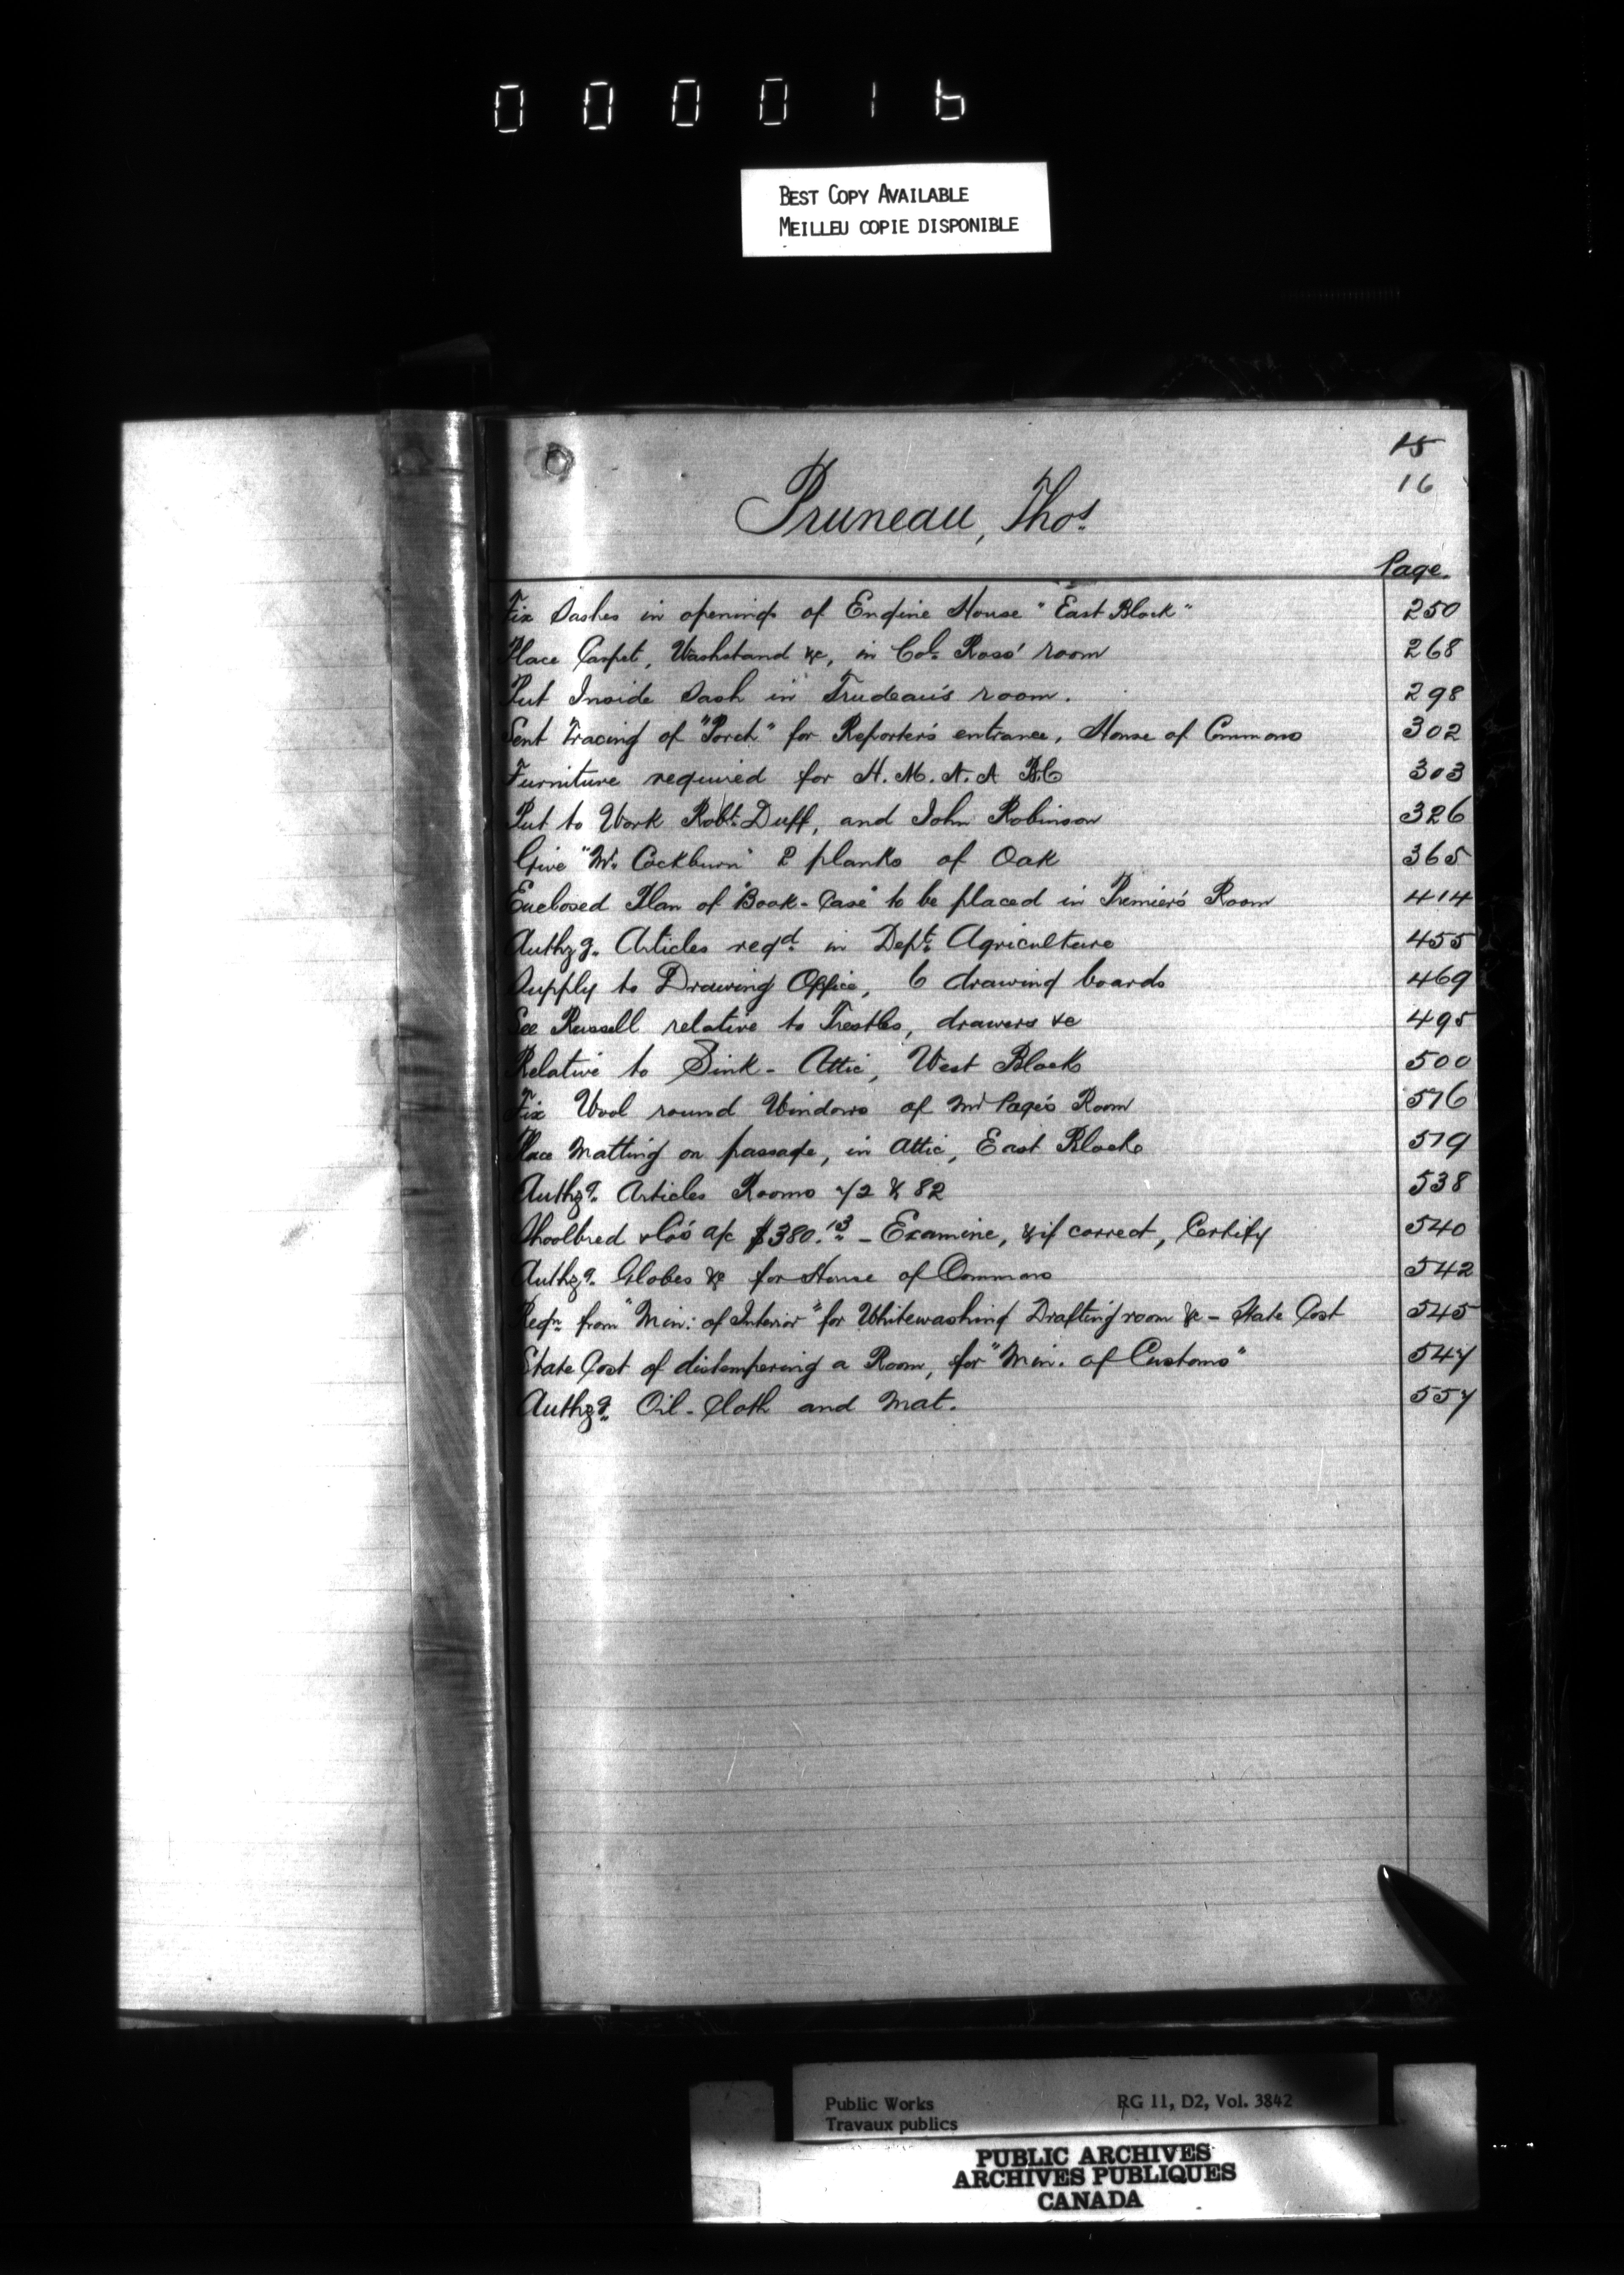 000016
BEST COPY AVAILABLE
MEILLEU COPIE DISPONIBLE
15
16
Pruneau, Thos.
Page.
Fix Sashes in openings of Engine House "East Block" 250
Place Carpet, Washstand &c, in Col. Ross' room 268
Put Inside Sash in Trudeau's room. 298
Sent Tracing of "Porch" for Reporter's entrance, House of Commons 302
Furniture required for H. M. A. A 303
Put to Work Robt. Duff, and John Robinson 326
Give "Mr. Cockburn" 2 planks of Oak 365
Enclosed Plan of "Book-Case" to be placed in Premier's Room 414
Authzg. Articles reqd. in Dept. Agriculture 455
Supply to Drawing Office, 6 drawing boards 469
See Russell relative to Trestles, drawers &c 495
Relative to Sink - Attic, West Block 500
Fix Wool round Windows of Mr Page's Room 516
Place Matting on passage, in Attic, East Block 519
Authzg. Articles Rooms 72 & 82 538
Shoolbred & Co's a/c $380.13 - Examine, & if correct, Certify 540
Authzg. Globes &c for House of Commons 542
Reqn. from "Min: of Interior" for Whitewashing Drafting room &c - State Cost 545
State Cost of distempering a Room, for "Min. of Customs" 547
Authzg. Oil-Cloth and Mat. 557
Public Works RG 11, D2, Vol. 3842
Travaux publics
PUBLIC ARCHIVES
ARCHIVES PUBLIQUES
CANADA